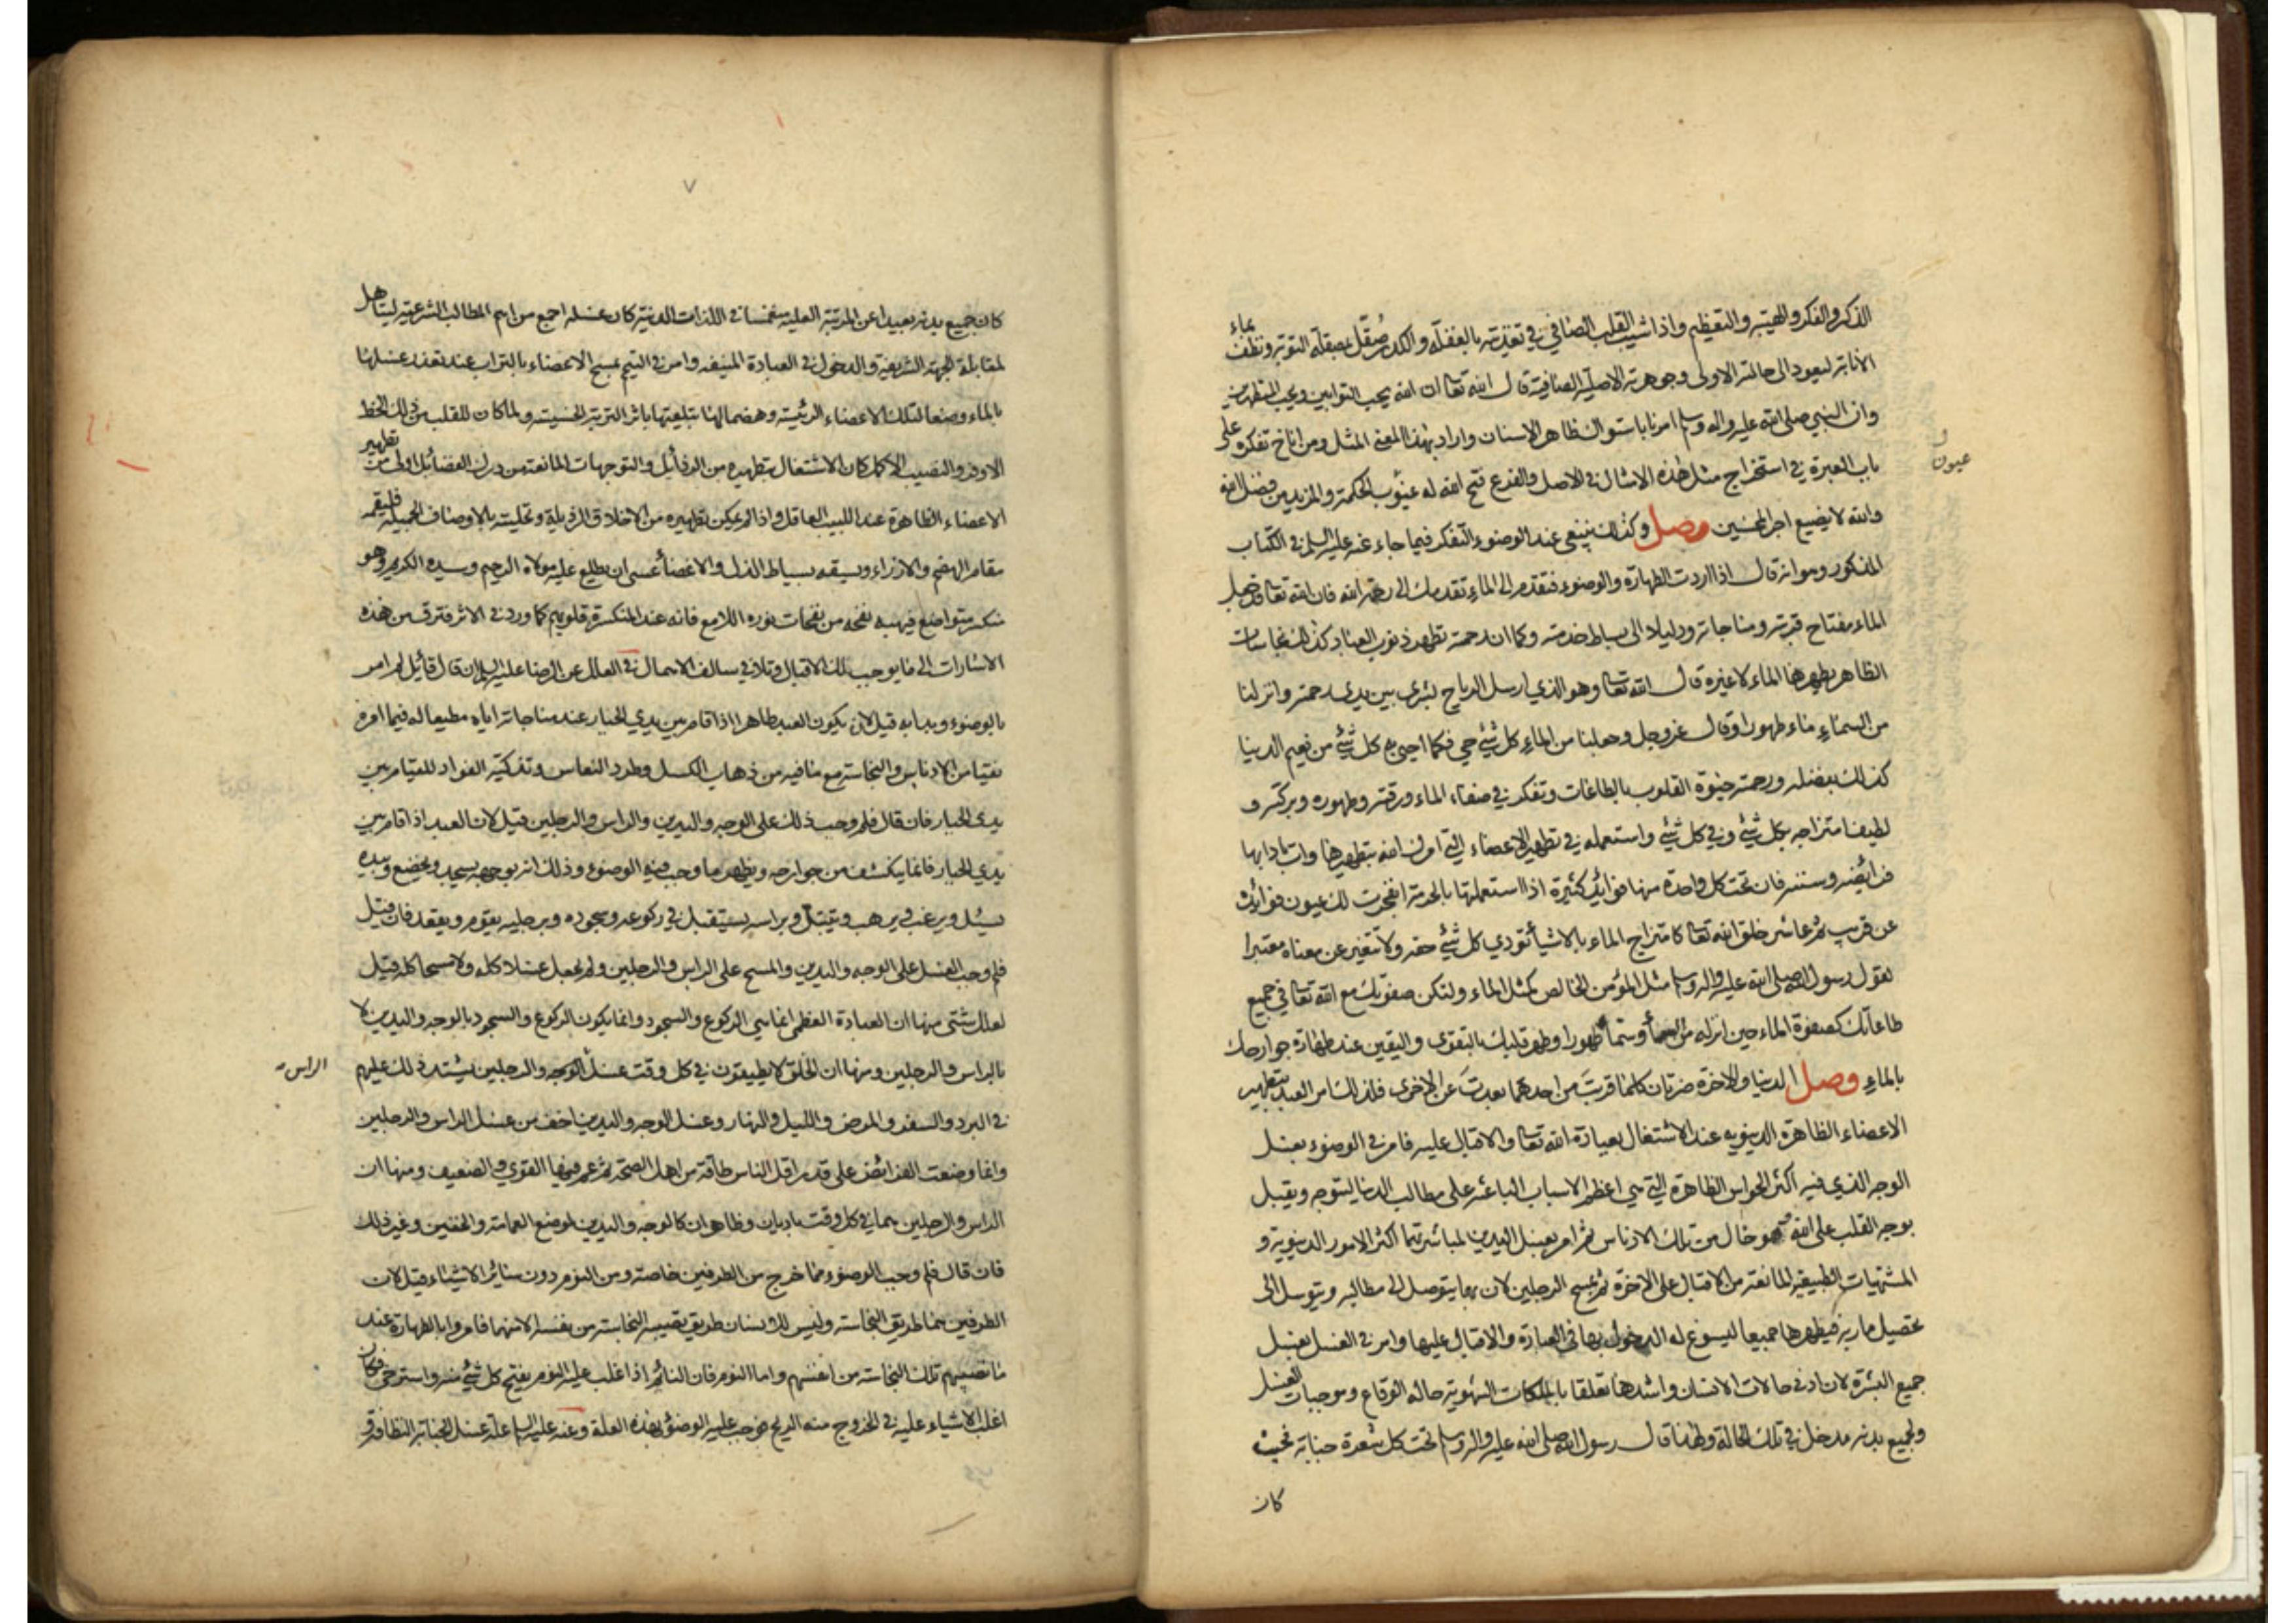 الذكر والفكر والهيبة والتعظيم واذا شيب القلب الصافي في تغذيته بالغفلة والكدر صُقّل بمصقلة التوبة ونظف بماء
الانابة ليعود الى حالته الاولى وجوهرته الاصلية الصافية قال الله تعا ان الله يحب التوابين ويحب المتطهرين
وان النبي صلى الله عليه واله وسلم امرنا باستواك ظاهر الاسنان واراد بهذا المعنى المثل ومن اناخ تفكره على
باب العبرة في استخراج مثل هذه الامثال في الاصل والفرع فتح الله له عيوب الحكمة والمزيد من فضل الله
عيون ل
والله لا يضيع اجر المحسنين وصل وكذلك ينبغي عند الوضوء التفكر فيما جاء عنه عليه السلم في الكتاب
المذكور وهو انه قال اذا اردت الطهارة والوضوء فتقدم الى الماء تقدمك الى رحمة الله فان الله تعا قد جعل
الماء مفتاح قربته ومناجاته ودليلا الى بساط خدمته وكما ان رحمته تطهر ذنوب العباد كذلك نجاسات
الظاهر يطهرها الماء لا غيره قال الله تعا وهو الذي ارسل الرياح بشرى بين يدى رحمته وانزلنا
من السماء ماء طهورا وقال عز وجل وجعلنا من الماء كل شئ حي فكما احيى به كل شئ من نعيم الدنيا
كذلك بفضله ورحمته حيوة القلوب بالطاعات وتفكر في صفاء الماء ورقته وطهوره وبركته و
لطيف امتزاجه بكل شئ وفي كل شئ واستعمله في تطهير الاعضاء التي امرك الله بتطهيرها وات بادابها
فرائضه وسننه فان تحت كل واحدة منها فوائد كثيرة اذا استعملتها بالحرمة انفجرت لك عيون فوائده
عن قريب ثم عاشر خلق الله تعا كامتزاج الماء بالاشياء تؤدي كل شئ حقه ولا تتغير عن معناه معتبرا
لقول رسول الله صلى الله عليه واله وسلم مثل المؤمن الخالص كمثل الماء ولتكن صفوتك مع الله تعا في جميع
طاعاتك كصفوة الماء حين انزله من السماء وسماه طهورا وطهر قلبك بالتقوى واليقين عند طهارة جوارحك
بالماء وصل الدنيا والاخرة ضرتان كلما قربت من احدهما بعدت عن الاخرى فلذلك امر العبد بتطهير
الاعضاء الظاهرة الدنيويه عند الاشتغال بعبادة الله تعا والاقبال عليه فامر في الوضوء بغسل
الوجه الذي فيه اكثر الحواس الظاهرة التي هي اعظم الاسباب الباعثة على مطالب الدنيا ليتوجه ويقبل
بوجه القلب على الله وهو خال من تلك الادناس ثم امر بغسل اليدين لمباشرتهما اكثر الامور الدنيوية و
المشتهيات الطبيعية المانعة من الاقبال على الاخرة ثم بمسح الرجلين لان بهما يتوصل الى مطالبه ويتوسل الى
تحصيل ماربه فيطهرها جميعا ليسوغ له الدخول بها في العبادة والاقبال عليها وامر في الغسل بغسل
جميع البشرة لان ادنى حالات الانسان واشدها تعلقا بالملكات الشهوية حالة الوقاع وموجبات الغسل
ولجميع بدنه مدخل في تلك الحالة ولهذا قال رسول الله صلى الله عليه واله وسلم تحت كل شعرة جنابة فحيث
كان
٧
كان جميع بدنه بعيدا عن المرتبة العلية منغمسا في اللذات الدنية كان غسله اجمع من اهم المطالب الشرعية ليتاهل
لمقابلة الجهة الشريفة والدخول في العبادة المنيفه وامر في التيمم بمسح الاعضاء بالتراب عند تعذر غسلها
بالماء وضعا لتلك الاعضاء الرئيسة وهضما لها بتلقيها باثر التربة الخسيسة ولما كان للقلب من ذلك الحظ
الاوفر والنصيب الاكمل كان الاشتغال بتطهيره من الرذائل والتوجهات المانعة من درك الفضائل اولى من تطهير
الاعضاء الظاهرة عند اللبيب العاقل واذا لم يمكن تطهيره من الاخلاق الرذيلة وتحليته بالاوصاف الجميلة فليقمه
مقام الهضم والازراء ويسقه بسياط الذل والاغضاء عسى ان يطلع عليه مولاه الرحيم وسيده الكريم وهو
منكسر متواضع فيهبه نفحة من نفحات نوره اللامع فانه عند المنكسرة قلوبهم كما ورد في الاثر فترق من هذه
الاشارات الى ما يوجب لك الاقبال وتلافي سالف الاهمال في العلل عن الرضا عليه السلم ان قال قائل لم امر
بالوضوء وبدا به قيل لان يكون العبد طاهرا اذا قام بين يدي الجبار عند مناجاته اياه مطيعا له فيما امره
نقيا من الادناس والنجاسة مع ما فيه من ذهاب الكسل وطرد النعاس وتذكية الفواد للقيام بين
يدي الجبار فان قال فلم وجب ذلك على الوجه واليدين والراس والرجلين قيل لان العبد اذا قام بين
يدي الجبار فانما ينكشف من جوارحه ويظهر ما وجب فيه الوضوء وذلك انه بوجهه يسجد ويخضع وبيده
يسئل ويرغب ويرهب ويتبتل وبراسه يستقبل في ركوعه وسجوده وبرجليه يقوم ويقعد فان قيل
فلم وجب الغسل على الوجه واليدين والمسح على الراس والرجلين ولم يجعل غسلا كله ولا مسحا كله قيل
لعلل شتى منها ان العبادة العظمى انما هي الركوع والسجود وانما يكون الركوع والسجود بالوجه واليدين لا
بالراس والرجلين ومنها ان الخلق لا يطيقون في كل وقت غسل الوجه والرجلين يشتد ذلك عليهم
الراس
في البرد والسفر والمرض والليل والنهار وغسل الوجه واليدين اخف من غسل الراس والرجلين
وانما وضعت الفرائض على قدر اقل الناس طاقة من اهل الصحة ثم عم فيها القوي والضعيف ومنها ان
الراس والرجلين هما في كل وقت باديان وظاهران كالوجه واليدين لموضع العمامة والخفين وغير ذلك
فان قال فلم وجب الوضوء مما خرج من الطرفين خاصة ومن النوم دون سائر الاشياء قيل لان
الطرفين هما طريق النجاسة وليس للانسان طريق تصيبه النجاسة من نفسه الا منهما فامروا بالطهارة عند
ما تصيبهم تلك النجاسة من انفسهم واما النوم فان النائم اذا غلب عليه النوم يفتح كل شئ منه واسترخى فكان
اغلب الاشياء عليه في الخروج منه الريح فوجب عليه الوضوء بهذه العلة وعنه عليه السلم علة غسل الجنابة النظافة و